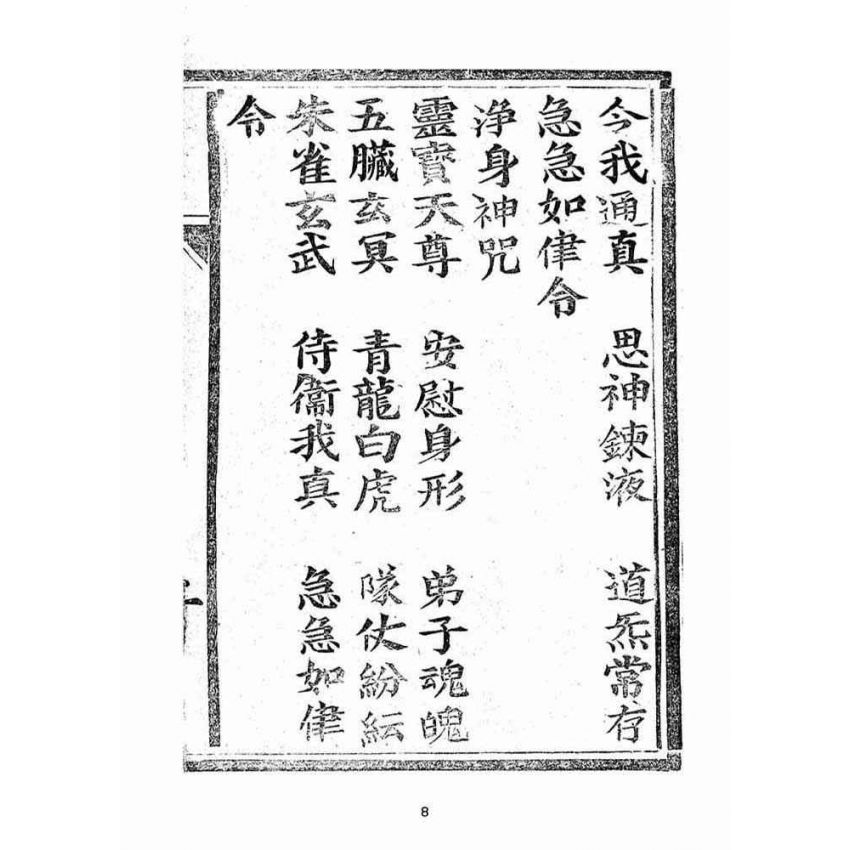 今我通真 思神鍊液 道炁常存
急急如律令
淨身神咒
靈寳天尊 安慰身形 弟子魂魄
五臟玄冥 青龍白虎 隊仗紛紜
朱雀玄武 侍衞我真 急急如律
令
8